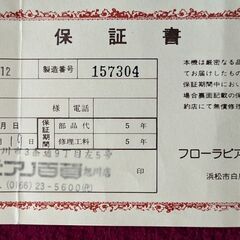 保証書
12 製造番号 157304
様 電話
月 日 保証期間 部品代 5年
19 修理工料 5年
川市3条通9丁目左5号
ピアノ百貨 旭川店
(0166)23-5600(代)
本機は厳密なる品
てお届けしたもの
保証期間中におい
場合裏面記載の保
約店にて無償修
フローラピア
浜松市白